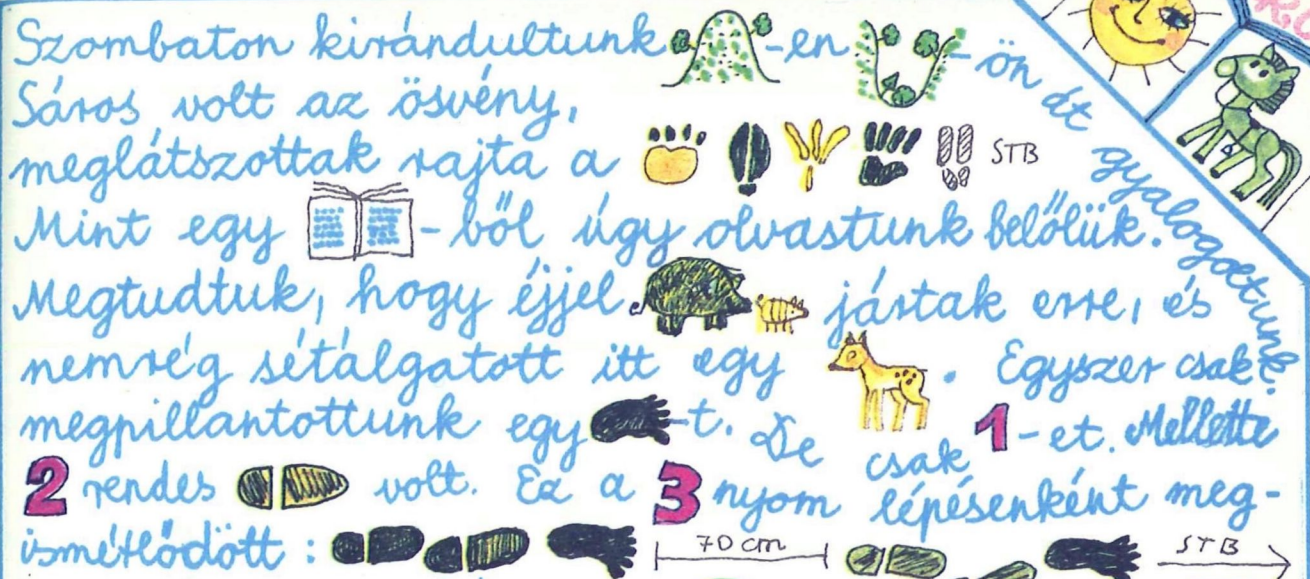 Szombaton kirándultunk -en -ön át gyalogoltunk.
Sáros volt az ösvény,
meglátszottak rajta a STB
Mint egy -ből úgy olvastunk belőlük.
Megtudtuk, hogy éjjel jártak erre, és
nemrég sétálgatott itt egy . Egyszer csak
megpillantottunk egy -t. De csak 1-et. Mellette
2 rendes volt. Ez a 3 nyom lépésenként meg-
ismétlődött : 70 cm STB